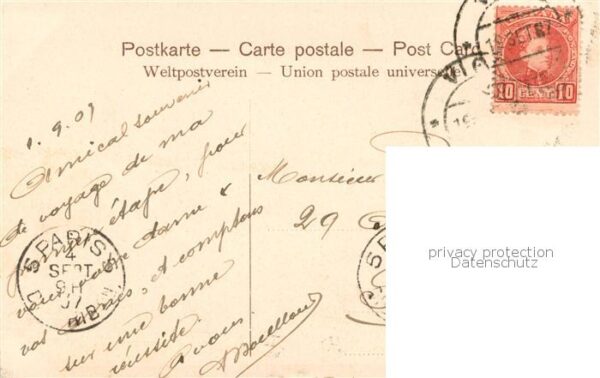 Postkarte — Carte postale — Post Card
Weltpostverein — Union postale universelle
10 CENT. 10
1.9.07
Amical souvenir
de voyage, de ma
étape, pour
vous, votre dame &
vos, et comptons
sur une bonne
réussite.
A vous
Monsieur
29
PARIS
4
SEPT
07
privacy protection
Datenschutz